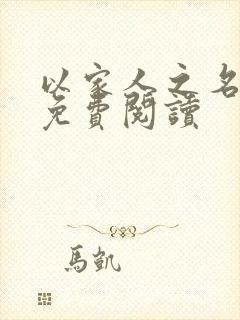 以家人之名
免費閱讀
馬凱